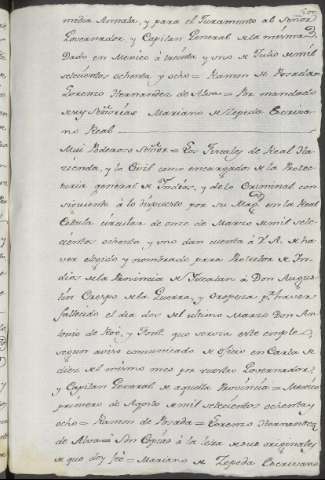 media Annata, y para el Juramento al Señor
Governador y Capitan General de la misma
Dado en Mexico á treinta, y uno de Julio de mil
setecientos ochenta, y ocho = Ramon de Posada =
Lorenzo Hernandez de Alva = Por mandado
de sus Señorías Mariano de Zepeda Escriva
no Real
Mui Poderoso Señor = Los Fiscales de Real Ha
zienda, y lo Civil como encargados de la Protec
turia general de Indias, y de lo Criminal con
siguiente á lo dispuesto por su Mag. en la Real
Cedula circular de once de Marzo de mil sete
cientos ochenta, y uno dan cuenta á V. A. de ha
ver elegido y nombrado para Protector de In
dios de la Provincia de Yucatan á Don Augus
tin Crespo de la Guerra, y Oropesa pr. haver
fallecido el dia dos del ultimo Marzo Don An
tonio de Roo, y Font que servia este empleo,
segun aviso comunicado de oficio en Carta de
diez del mismo mes por vuestro Governador,
y Capitan General de aquella Provincia = Mexico
primero de Agosto de mil setecientos ochenta y
ocho = Ramon de Posada = Lorenzo Hernandez
de Alva = Son Copias á la letra de sus originales
de que doy feé = Mariano de Zepeda Escrivano